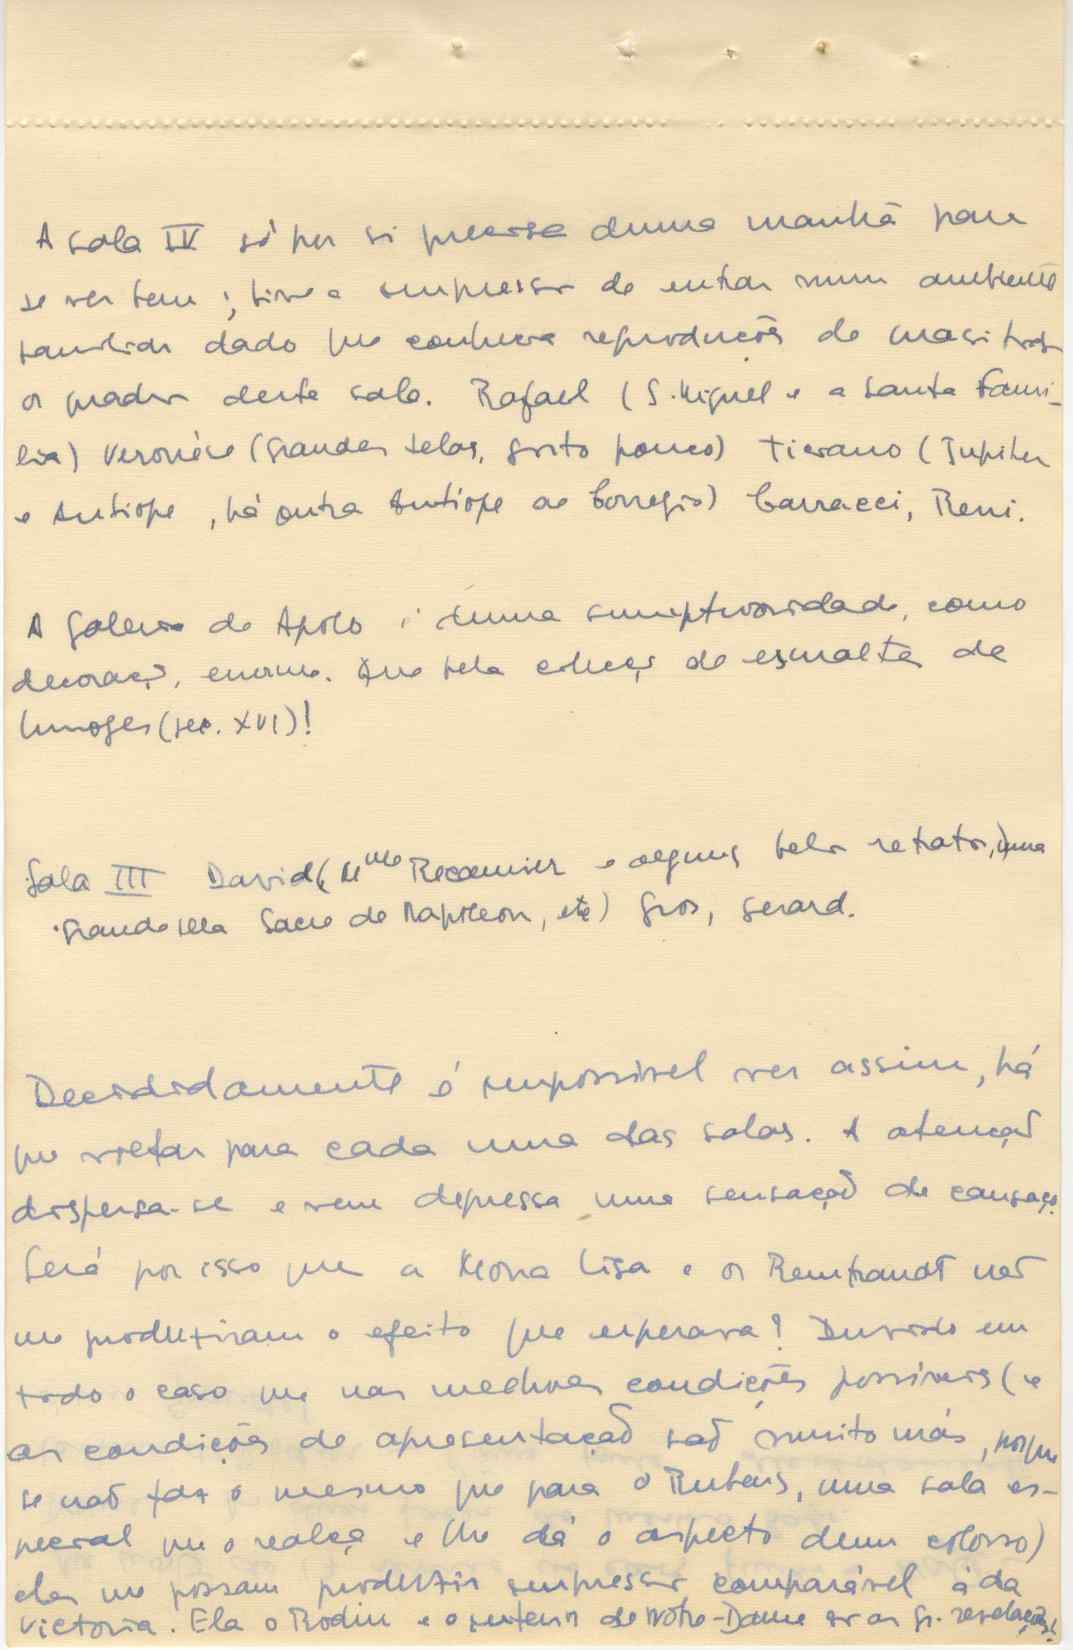 A sala IV só por si precisa duma manhã para
se ver bem; tive a impressão de entrar num ambiente
familiar dado que conhecia reproduções de quasi todos
os quadros desta sala. Rafael (S. Miguel e a Santa Fami-
lia) Veronése (grandes telas, gosto pouco) Ticiano (Jupiter
e Antiope, há outra Antiope de Corregio) Carracci, Reni.
A galeria de Apolo é duma sumptuosidade, como
decoração, enorme. Que bela colecção de esmaltes de
Limoges (sec. XVI)!
Sala III David (Mme Recamier e alguns belos retratos, uma
grande tela Sacre de Napoleon, etc) Gros, Gerard.
Decididamente é impossivel ver assim, há
que voltar para cada uma das salas. A atenção
dispersa-se e vem depressa uma sensação de cansaço.
Será por isso que a Mona Lisa e os Rembrandt não
me produziram o efeito que esperava? Duvido em
todo o caso que nas melhores condições possiveis (e
as condições de apresentação são muito más, porque
se não faz o mesmo que para o Rubens, uma sala es-
pecial que o realça e lhe dá o aspecto dum colosso)
eles me possam produzir impressão comparável à da
Victoria. Ela o Rodin e o interior de Notre-Dame são as gr. revelações!